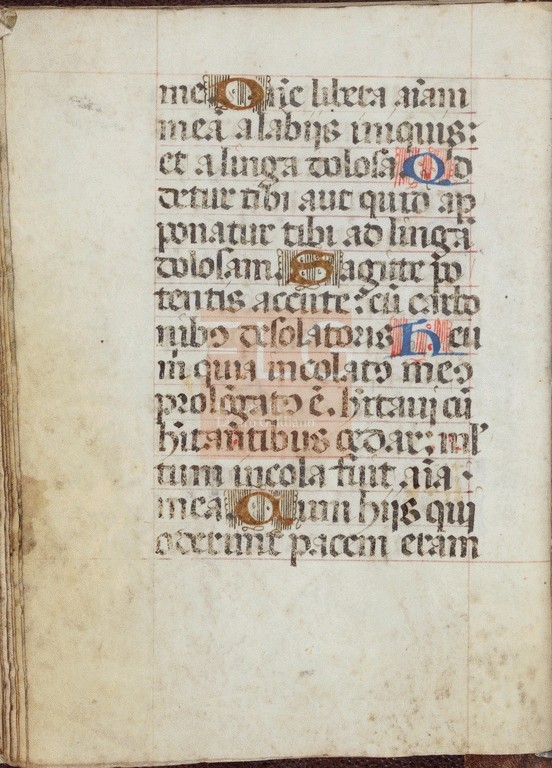 me Dn̄e libera aīam
meā a labijs iniquis:
et a linga dolosa Qd
detur tibi aut quid ap
ponatur tibi ad lingā
dolosam. Sagitte po
tentis accute: cū carbo
nibꝰ desolatoris Heu
m quia incolatꝰ meꝰ
prolōgatꝰ ē. h̄itaui cū
h̄itantibus cedar; ml'
tum incola fuit aīa
mea Cum hijs qui
oderunt pacem eram